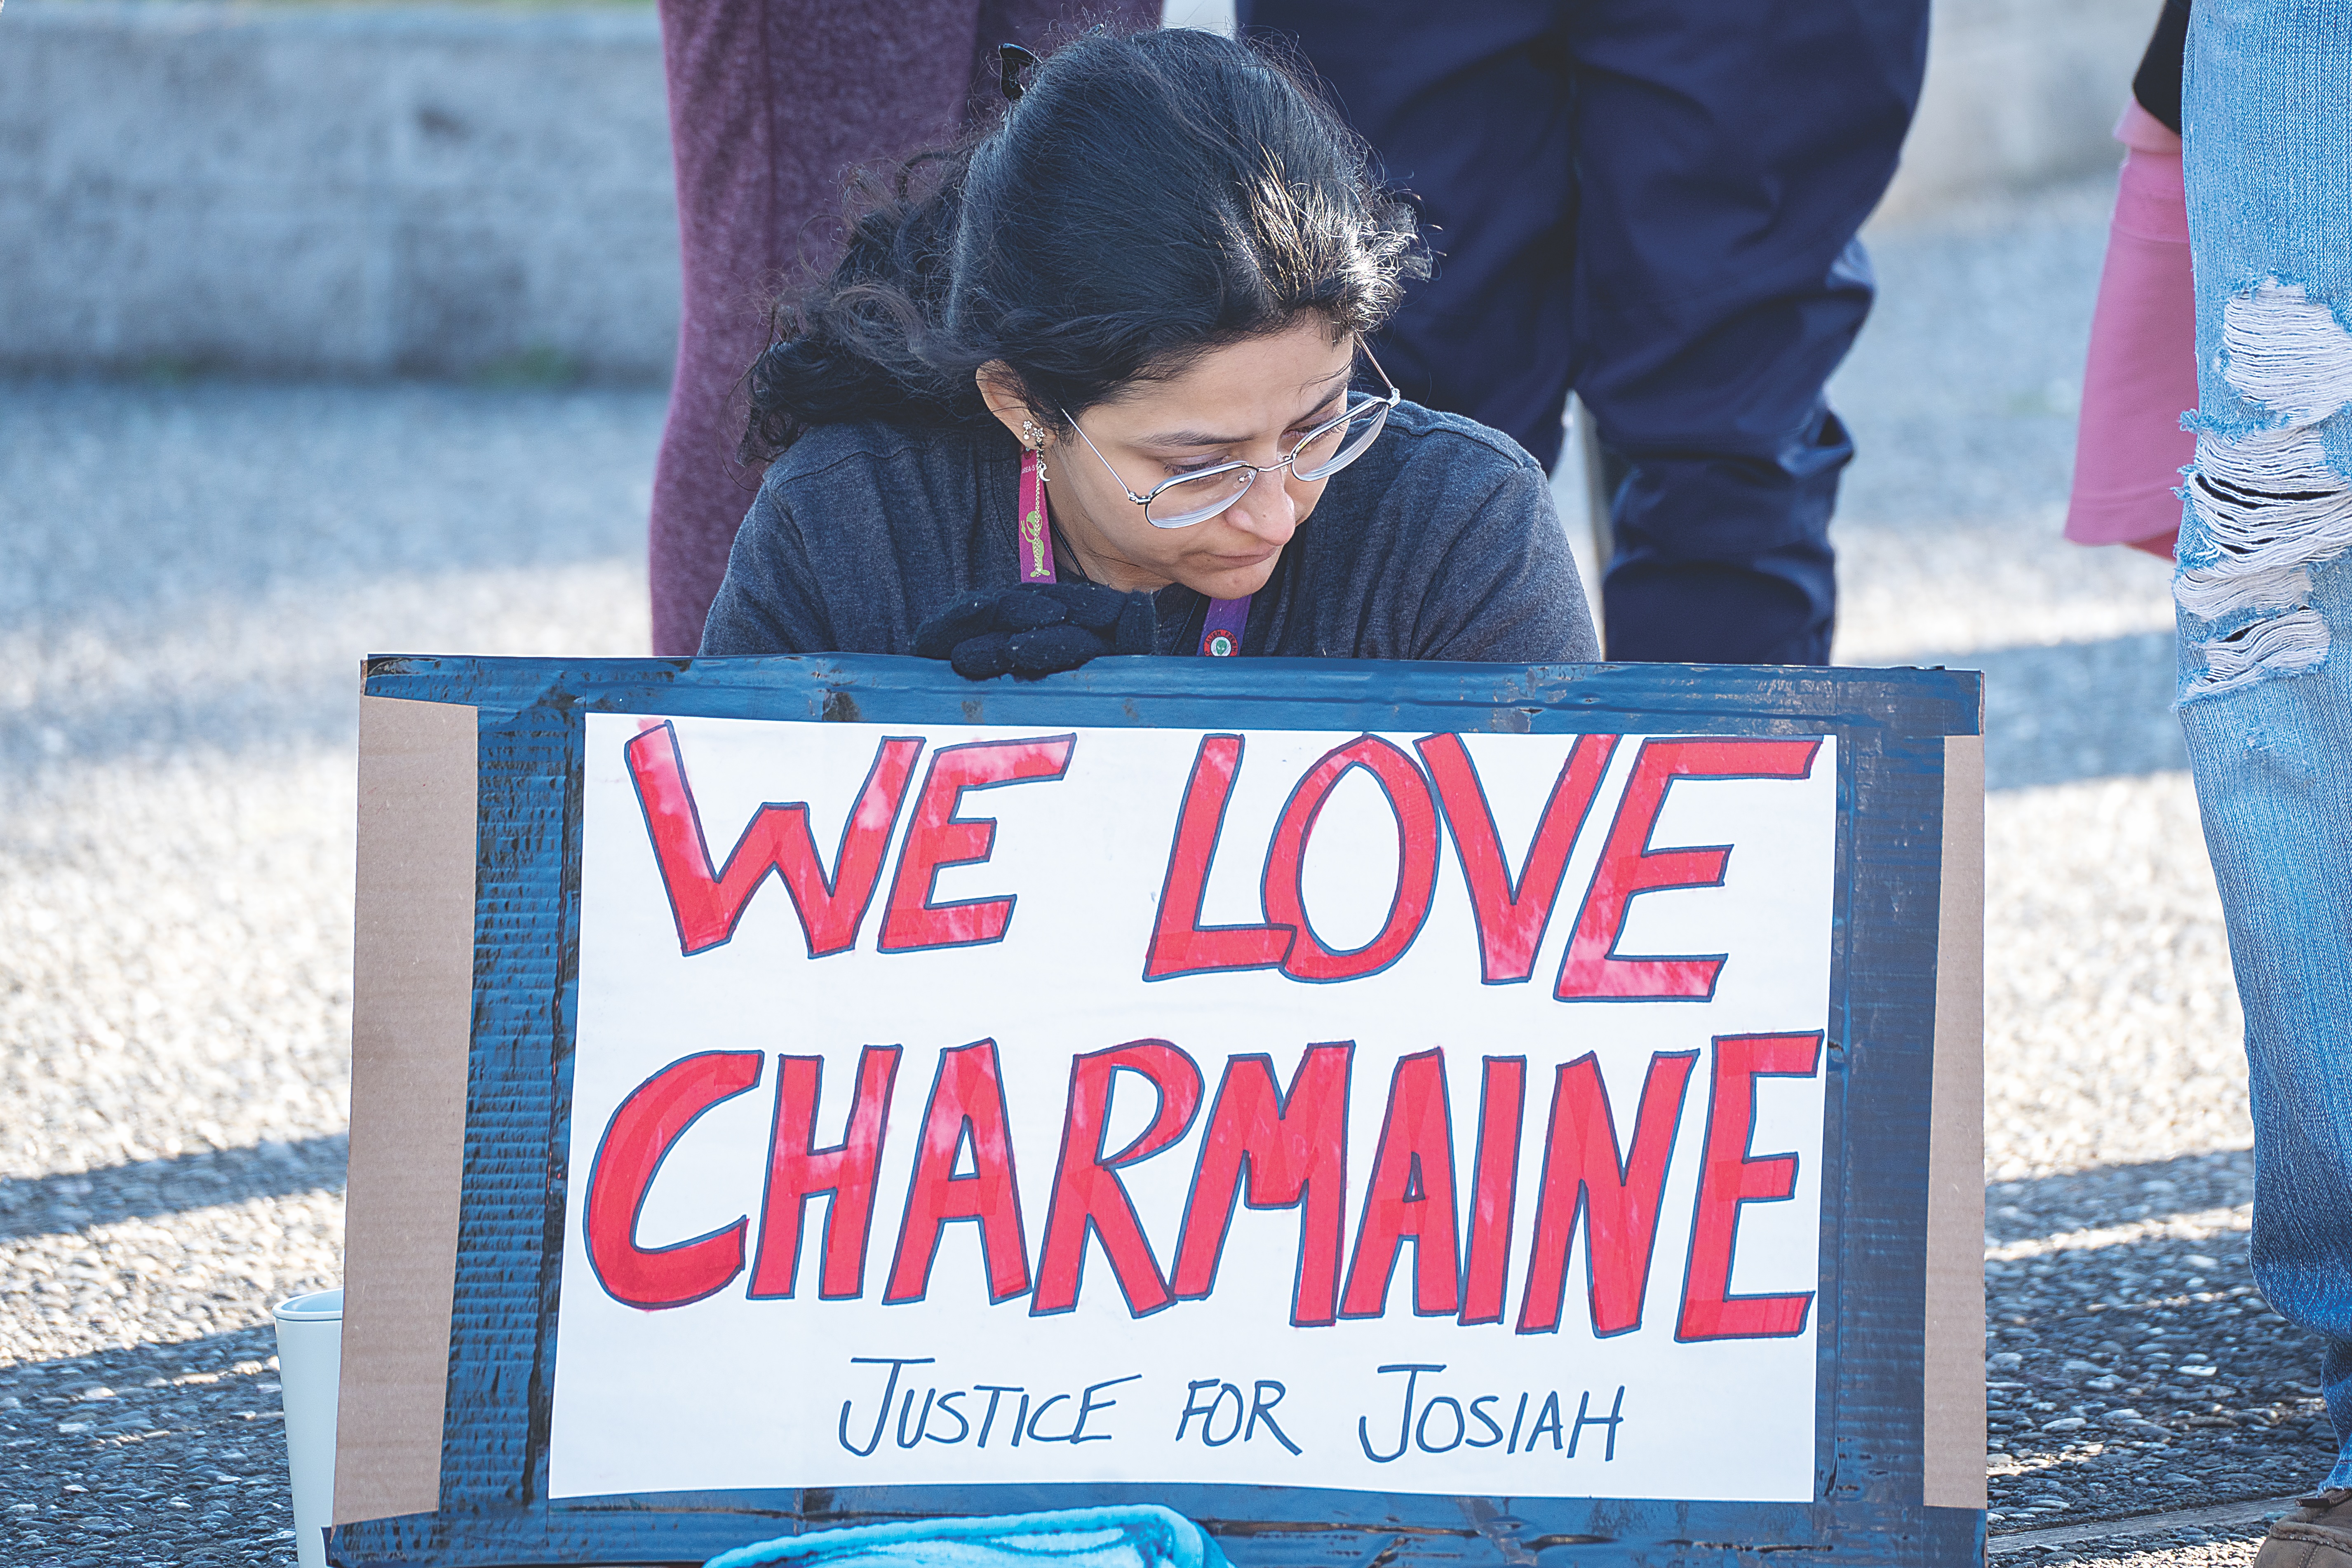 WE LOVE
CHARMAINE
JUSTICE FOR JOSIAH